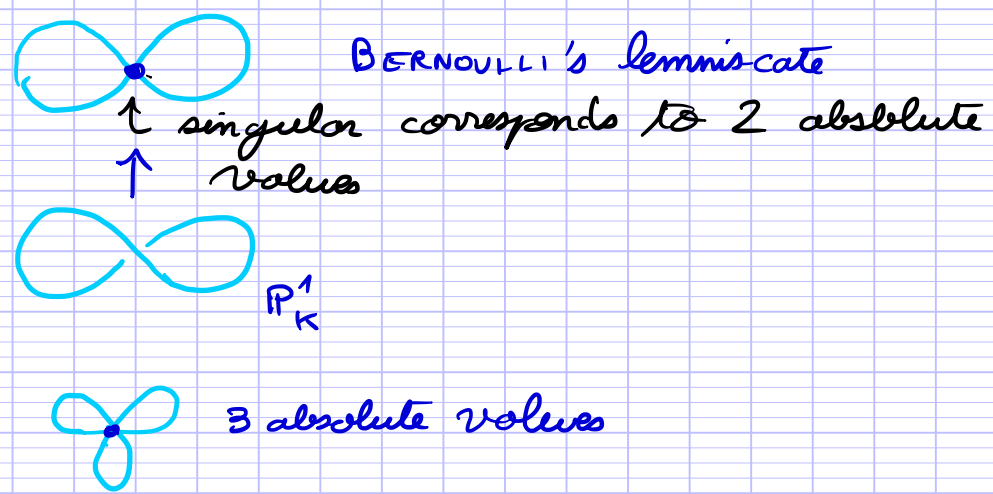 BERNOULLI's lemniscate
singular corresponds to 2 absolute
values
P¹_K
3 absolute values